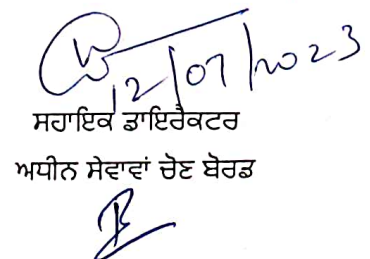 12/07/2023
ਸਹਾਇਕ ਡਾਇਰੈਕਟਰ
ਅਧੀਨ ਸੇਵਾਵਾਂ ਚੋਣ ਬੋਰਡ